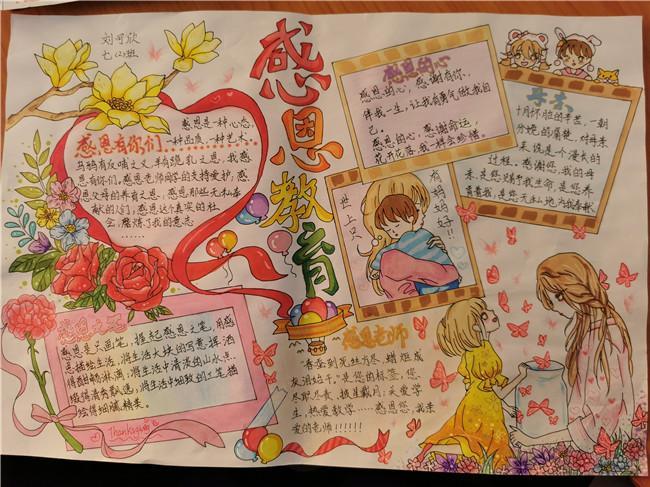 刘可欣
七(2)班
感恩教育
感恩有你们
感恩是一种心态,
一种品质,一种艺术。
乌鸦有反哺之义,羊有跪乳之恩。我感
恩有你们。感恩老师同学的支持爱护,感
恩父母的养育之恩;感恩那些无私奉
献的人们;感恩这个真实的社
会,磨炼了我的意志
……
感恩的心
感恩的心,感谢有你,
伴我一生,让我有勇气做我自
己。
感恩的心,感谢命运,
花开花落,我一样会珍惜。
母亲
十月怀胎的辛苦,一朝
分娩的痛楚,对母亲
来说是个漫长的
过程,感谢您,我的母
亲,是您赐予我生命,是您养
育着我,是您无私地为我奉献
世上只
有妈妈好!!
感恩是只画笔,握起感恩之笔,用感
恩描绘生活,将生活大块的写意挥洒
得酣畅淋漓,将生活中清淡的山水点
缀得清秀飘逸,将生活中细致的工笔描
绘得细腻精美。
Thanksgiving
感恩老师
春蚕到死丝方尽,蜡炬成
灰泪始干。是您的标签,您
尽职尽责,披星戴月;关爱学
生,热爱教学……感恩您,我亲
爱的老师!!!!!!